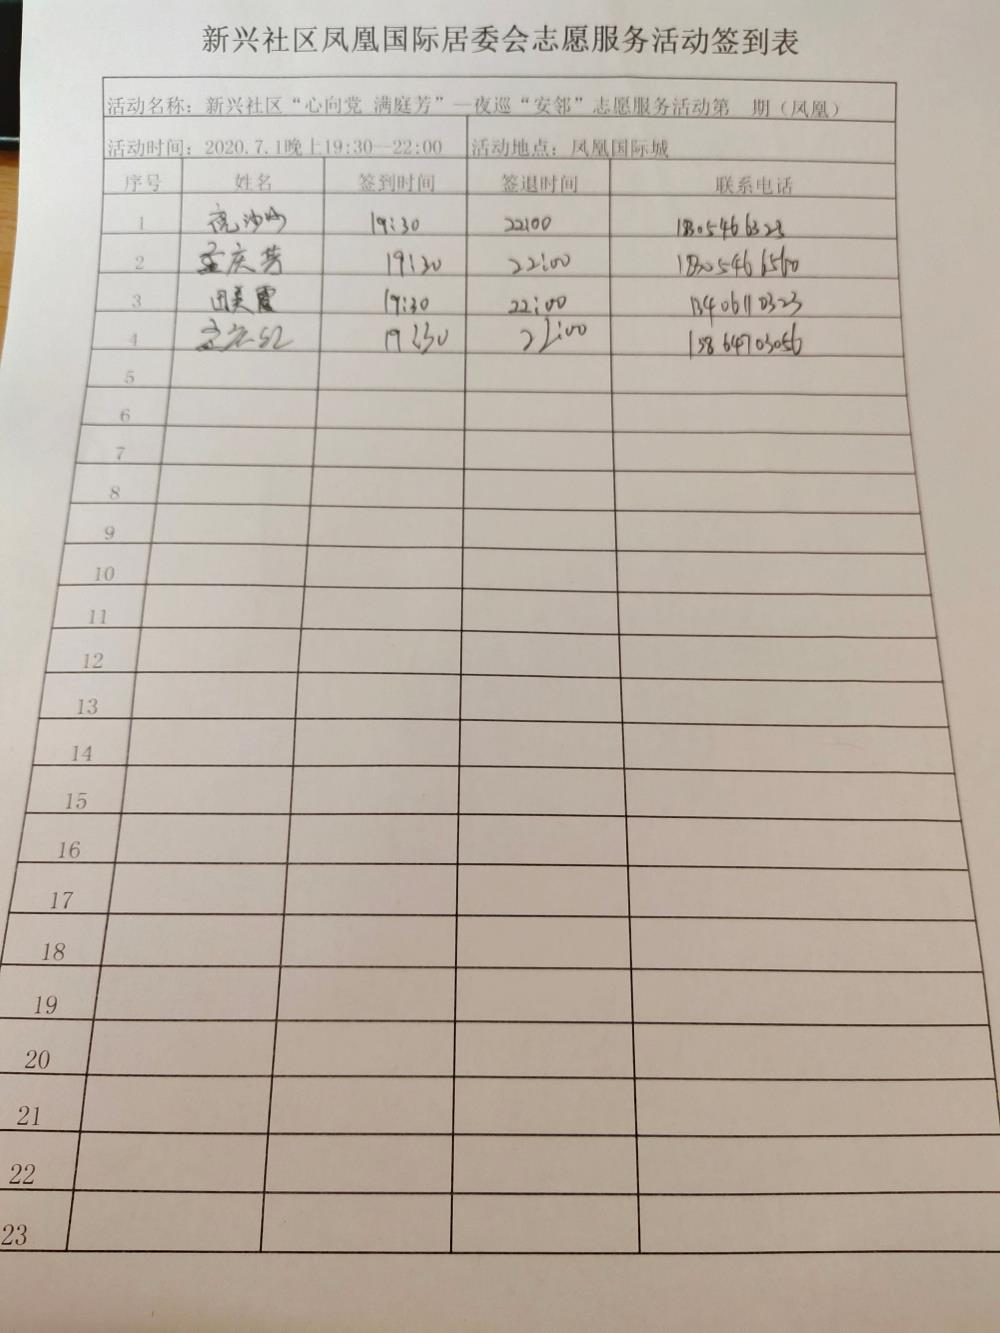 新兴社区凤凰国际居委会志愿服务活动签到表
活动名称：新兴社区“心向党 满庭芳”—夜巡“安邻”志愿服务活动第 期（凤凰）
活动时间：2020.7.1晚上19:30—22:00 活动地点：凤凰国际城
序号 姓名 签到时间 签退时间 联系电话
1 19:30 22:00 18305466323
2 孟庆芳 19:30 22:00
3 田美霞 19:30 22:00 13406110323
4 19:30 22:00 13864703056
5
6
7
8
9
10
11
12
13
14
15
16
17
18
19
20
21
22
23